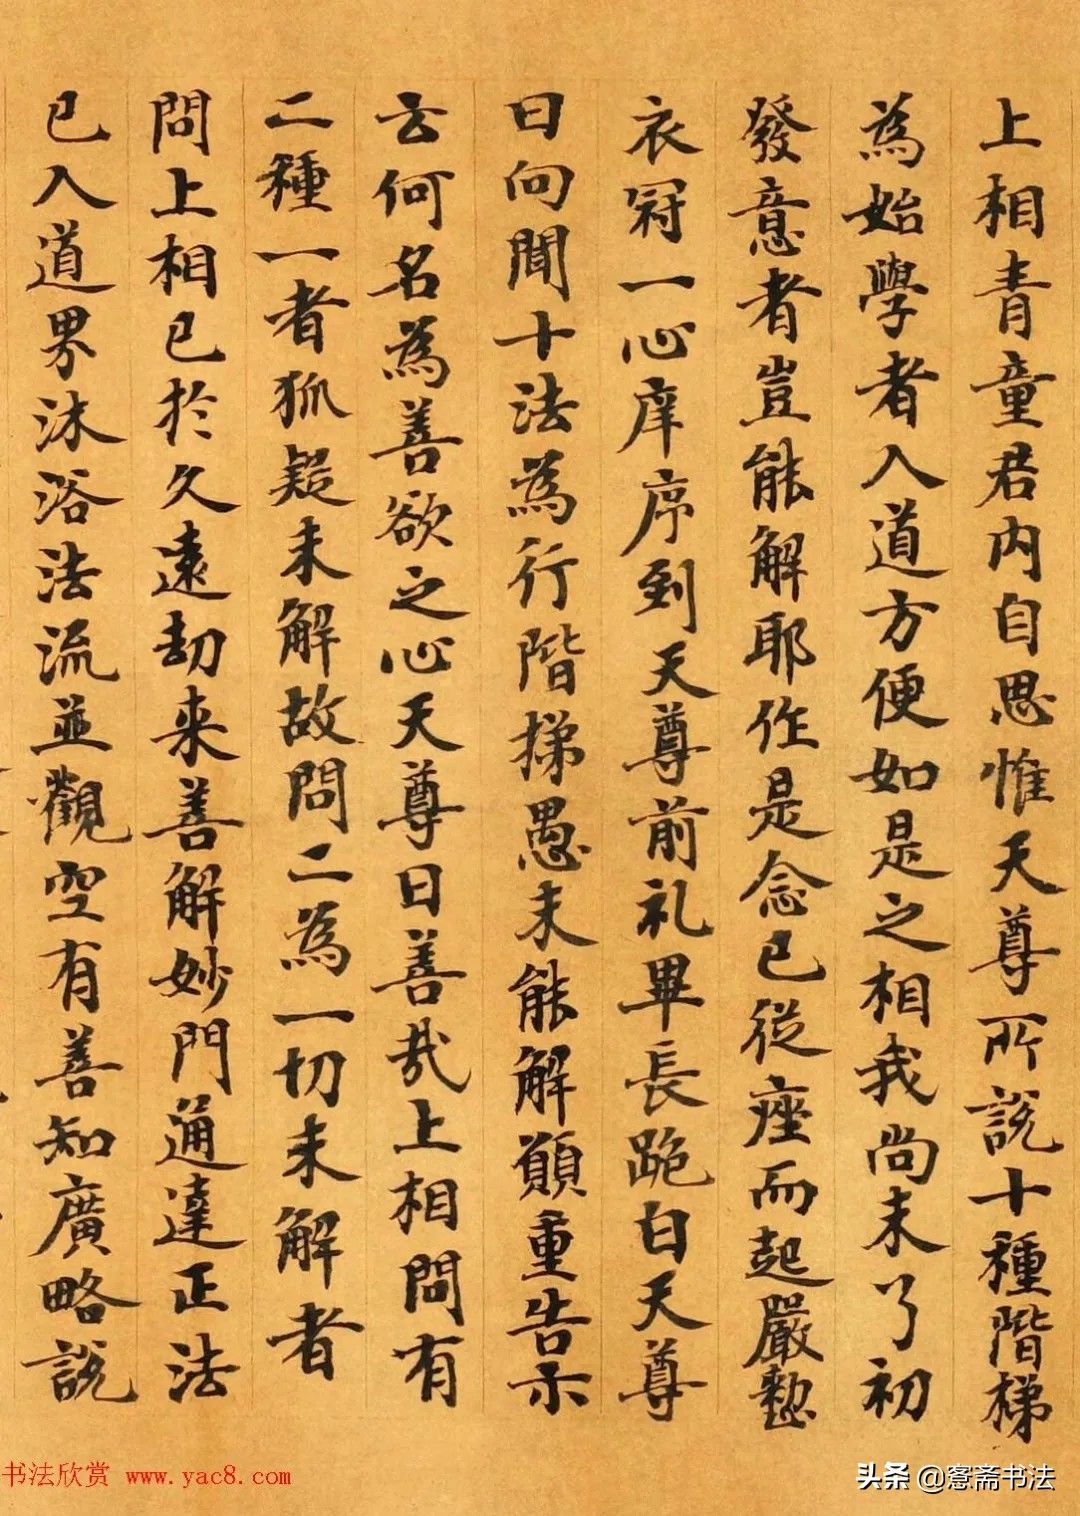 上相青童君内自思惟天尊所說十種階梯
為始學者入道方便如是之相我尚未了初
發意者豈能解耶作是念已從座而起嚴懃
衣冠一心庠序到天尊前礼畢長跪白天尊
曰向聞十法為行階梯愚未能解願重告示
云何名為善欲之心天尊曰善哉上相問有
二種一者狐疑未解故問二為一切未解者
問上相已於久遠劫来善解妙門通達正法
已入道界沐浴法流並觀空有善知廣略說
书法欣赏 www.yac8.com
头条 @愙斋书法